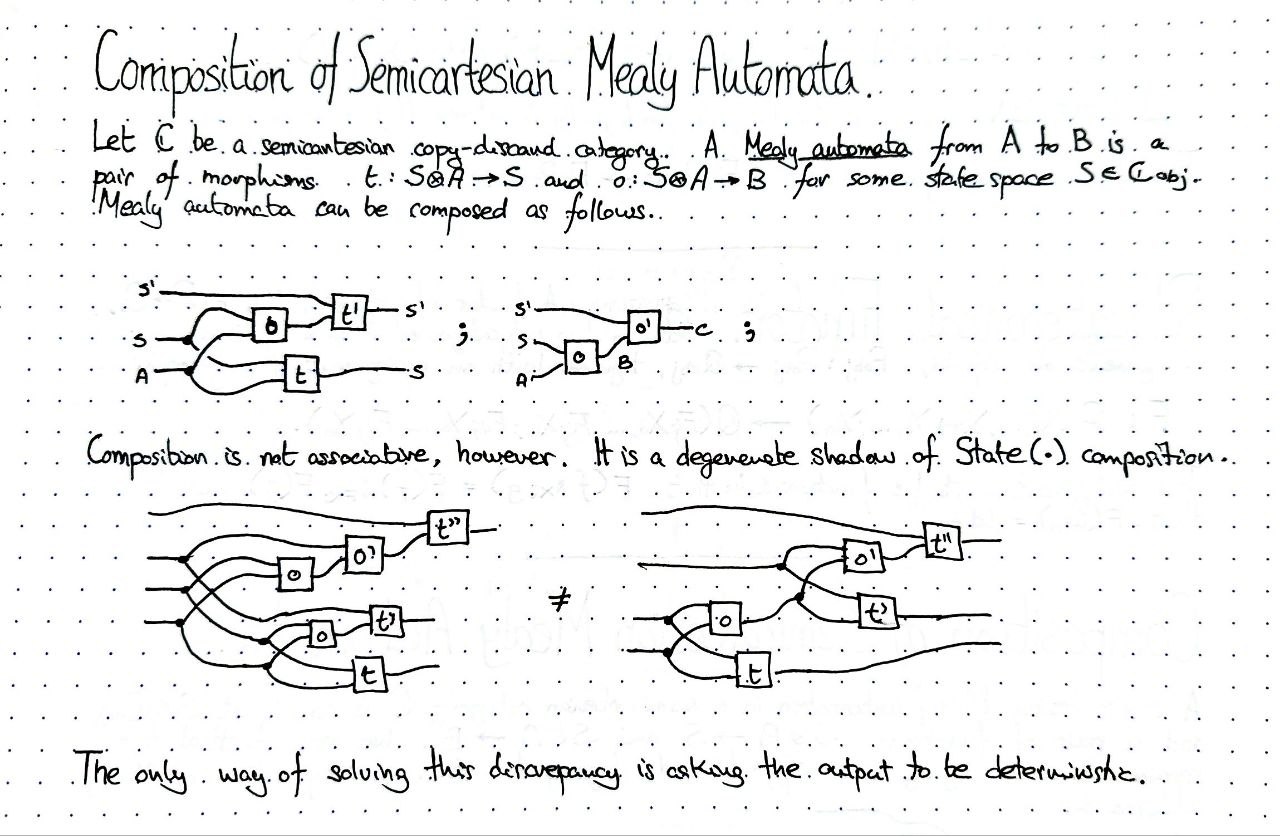 Composition of Semicartesian Mealy Automata.
Let C be a semicartesian copy-discard category. A Mealy automata from A to B is a
pair of morphisms t: S⊗A → S and o: S⊗A → B for some state space S ∈ C obj.
Mealy automata can be composed as follows.
S' t' S' S' o' C
S o ; S o B ;
A t S A
Composition is not associative, however. It is a degenerate shadow of State(·) composition.
t'' t''
o' o'
o ≠ t'
t' o
o t
t
The only way of solving this discrepancy is asking the output to be deterministic.